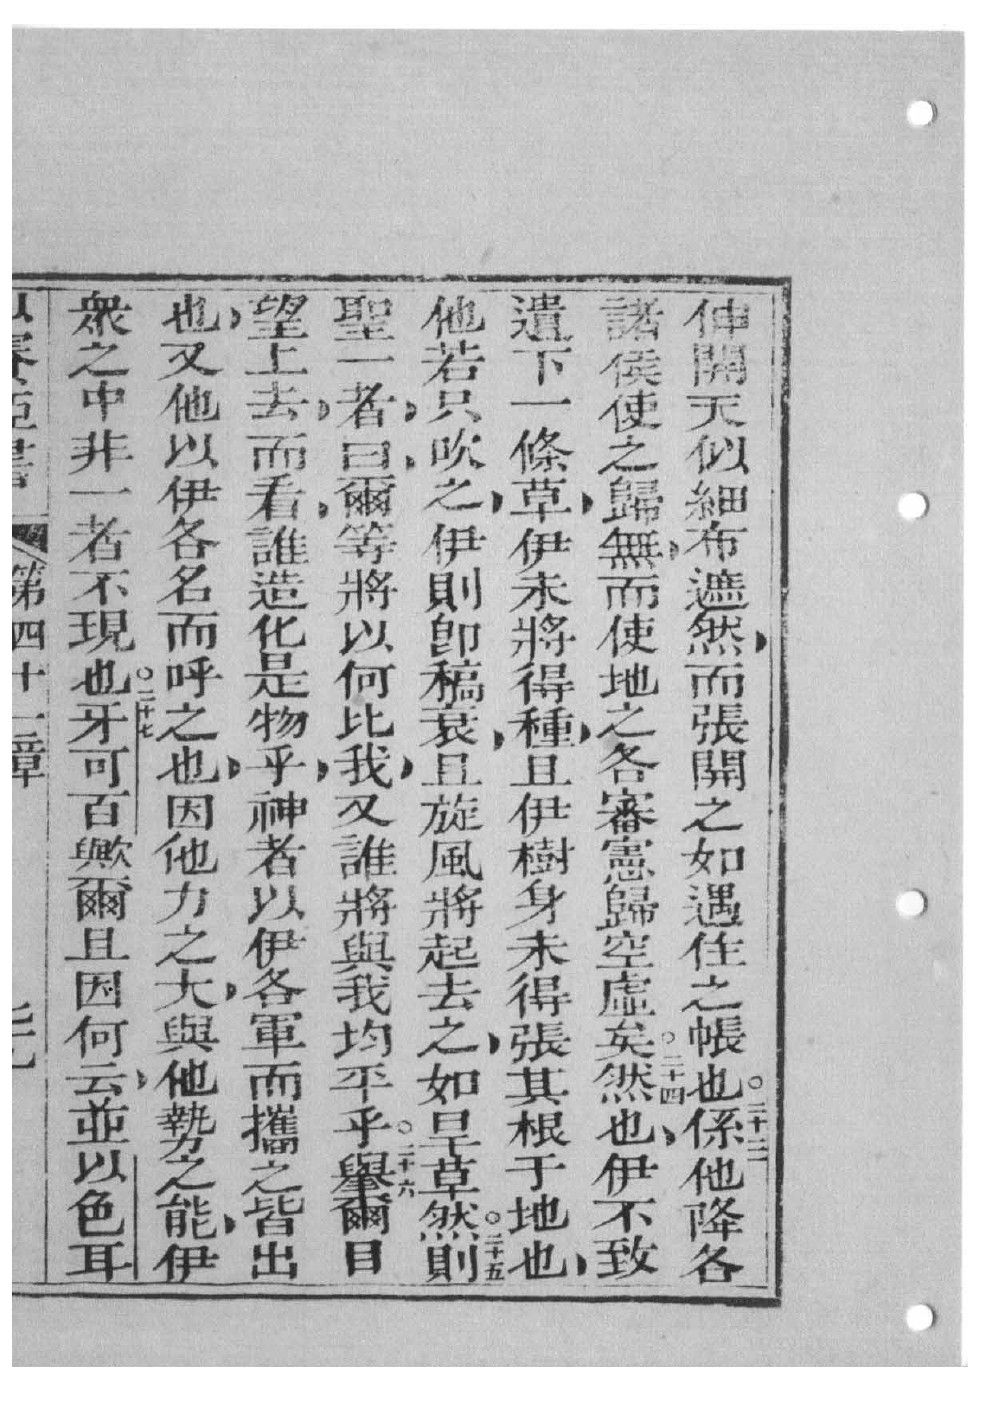 伸開天似細布遮然而張開之如遇住之帳也○二十三係他降各
諸侯使之歸無而使地之各審憲歸空虛矣○二十四然也伊不致
遺下一條草伊未將得種且伊樹身未得張其根于地也
他若只吹之伊則卽稿衰且旋風將起去之如旱草然○二十五則
聖一者曰爾等將以何比我又誰將與我均平乎○二十六舉爾目
望上去而看誰造化是物乎神者以伊各軍而攜之皆出
也又他以伊各名而呼之也因他力之大與他勢之能伊
衆之中非一者不現也○二十七牙可百歟爾且因何云並以色耳
以賽亞書 第四十一章